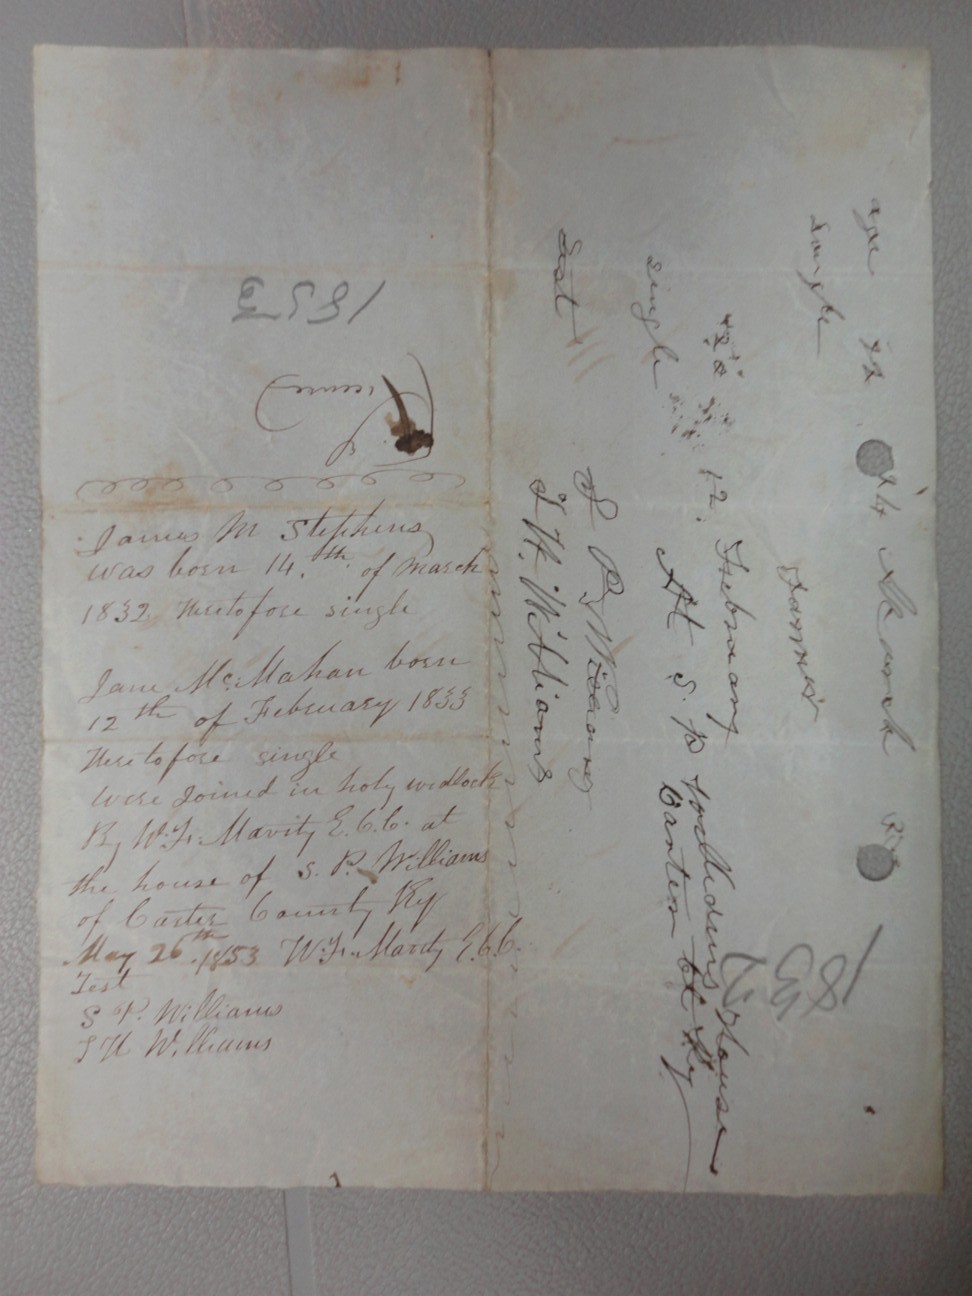 1853
James M Stephens
was born 14.th of March
1832 Heretofore single
Jane McMahan born
12th of February 1833
Heretofore single
were Joined in holy wedlock
By W. F. Mavity E.C.C. at
the house of S. P. Williams
of Carter County Ky
May 26th 1853 W. F. Mavity E.C.C.
Test
S P. Williams
T H Williams
age 22 14 March
single farmer
1832
12. February
single At S. P. Williams House
Carter Ct Ky
S P Williams
Test T H. Williams